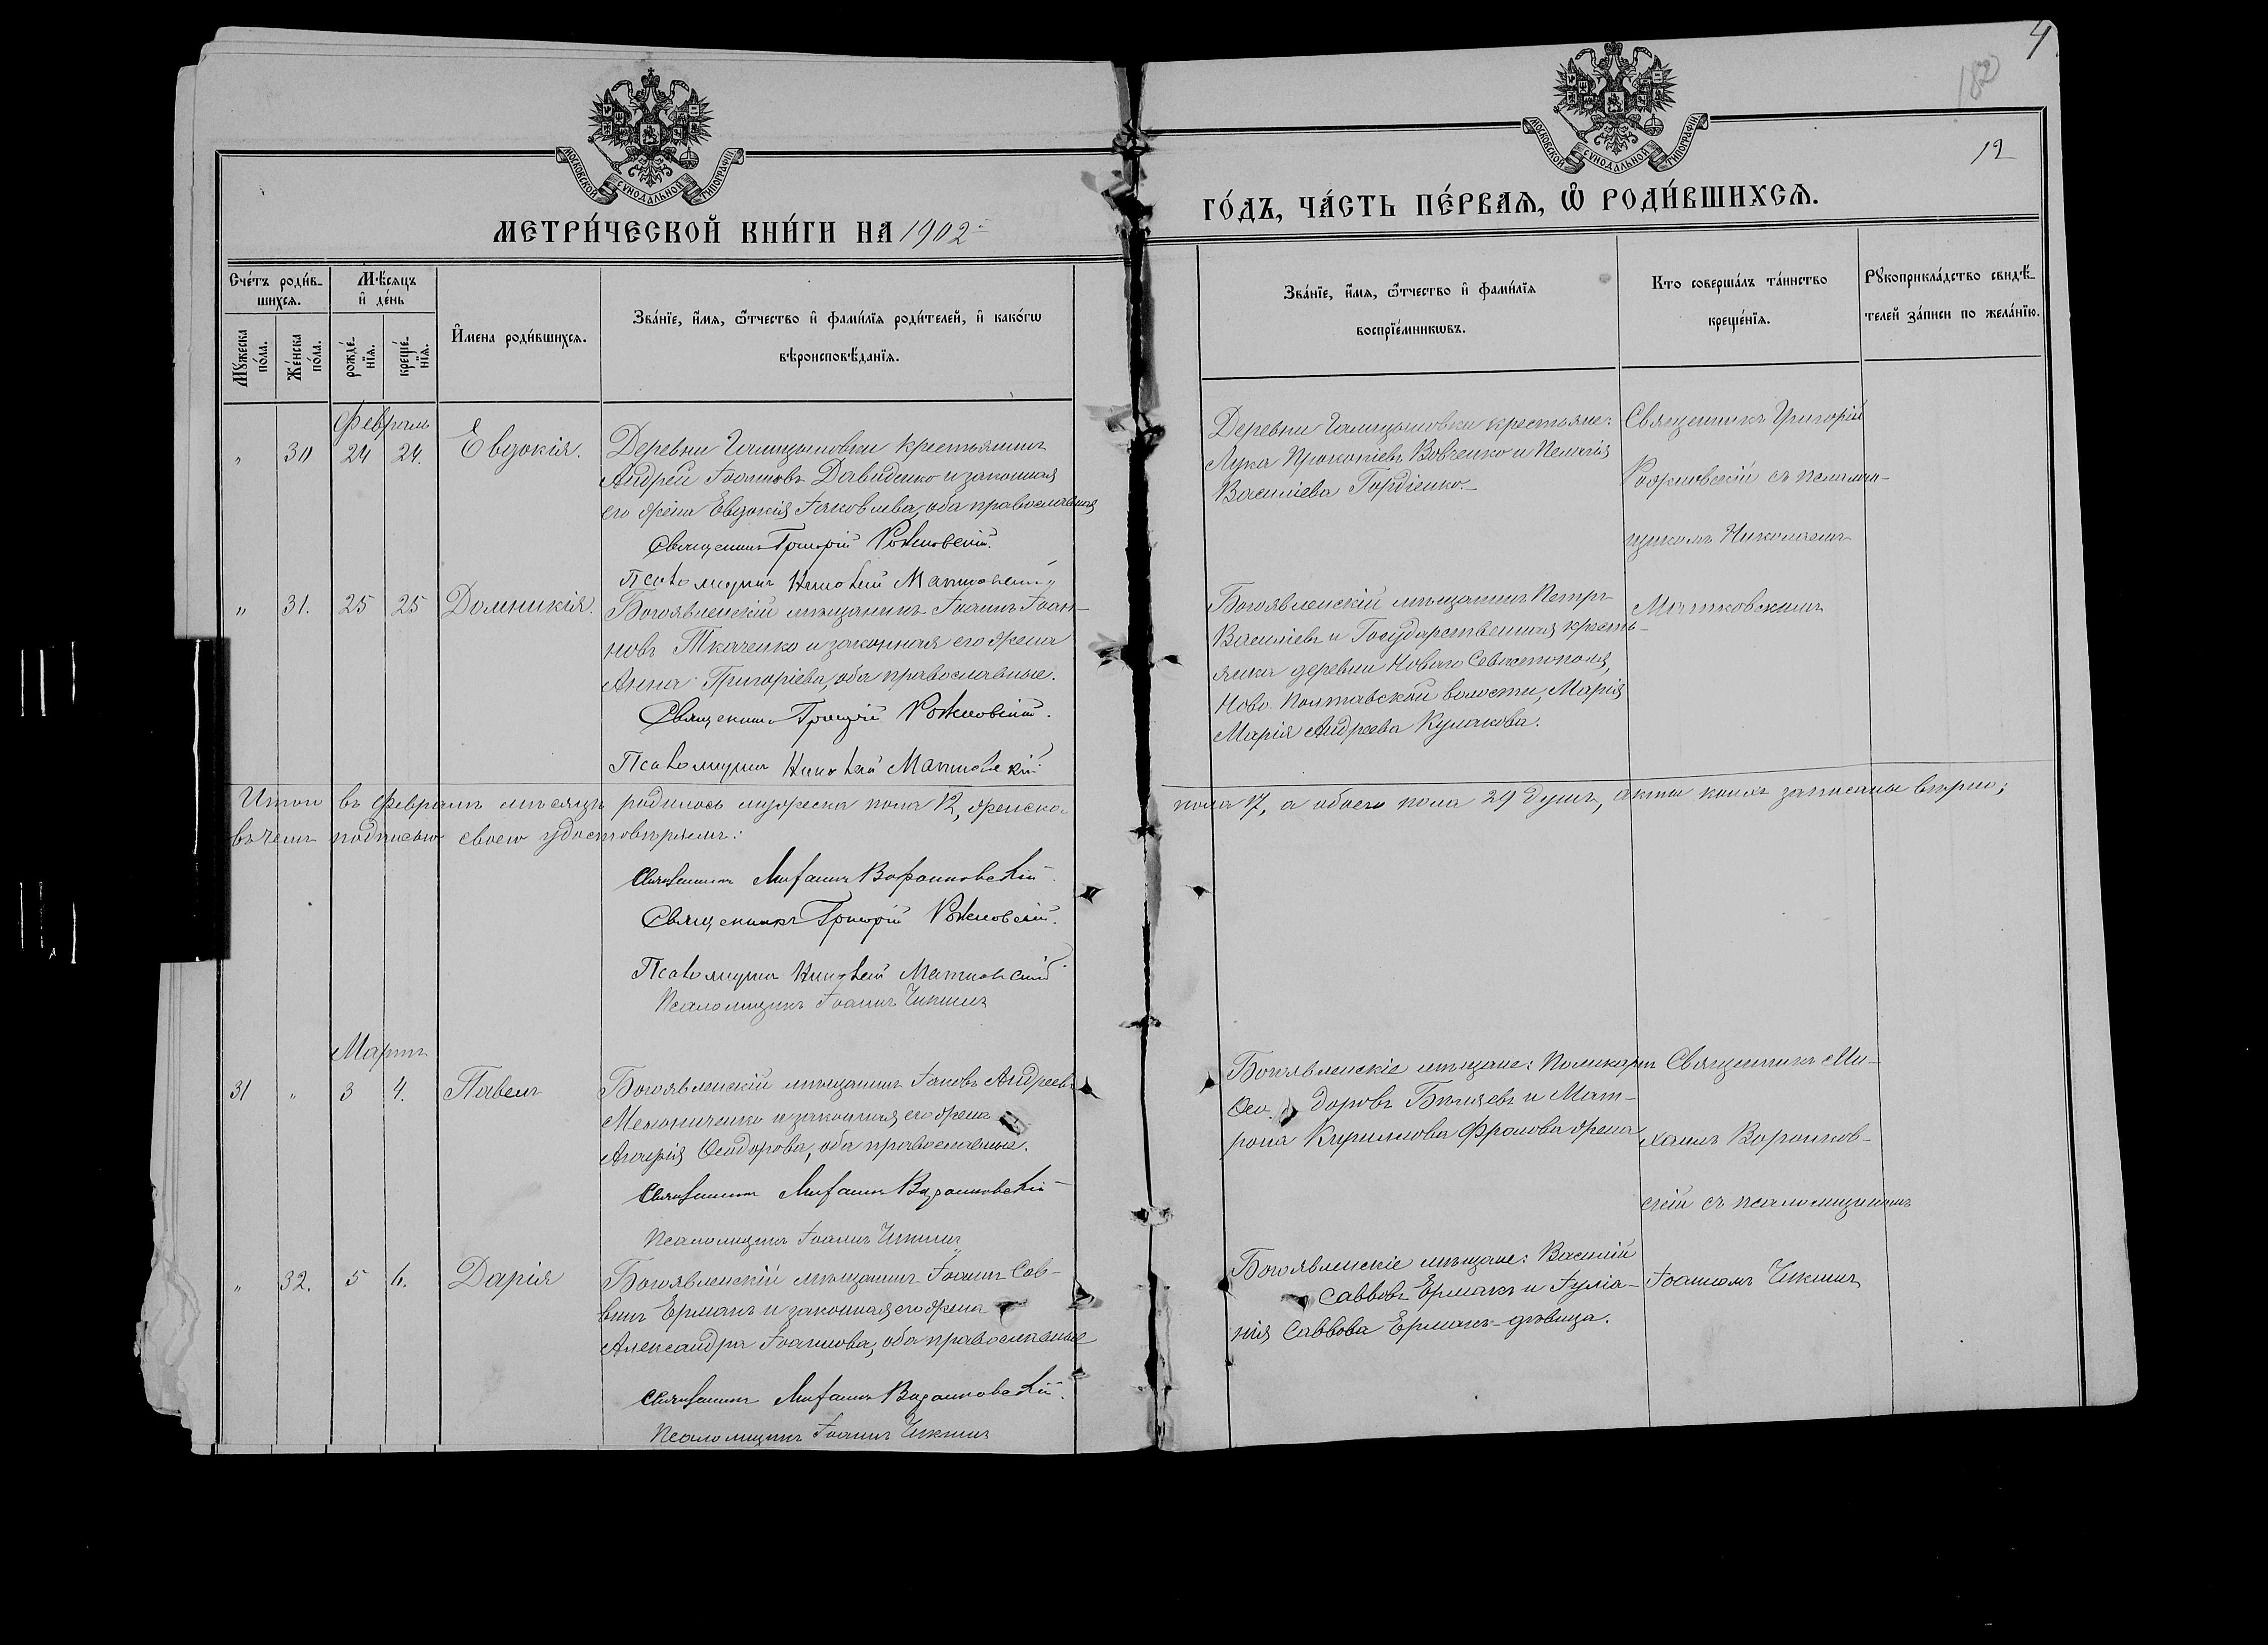 4
180
12
МОСКОВСКОЙ СУНОДАЛЬНОЙ ТИПОГРАФІИ
МОСКОВСКОЙ СУНОДАЛЬНОЙ ТИПОГРАФІИ
МЕТРИ́ЧЕСКОЙ КНИ́ГИ НА 1902
ГО́ДЪ, ЧА́СТЬ ПЕ́РВАѦ, Ѽ РОДИ́ВШИХСѦ.
Сче́тъ роди́в-
шихсѧ.
Мѣ́сѧцъ
и҆ де́нь
Мꙋ́жеска
по́ла.
Же́нска
по́ла.
рожде́-
нїѧ.
креще́-
нїѧ.
И҆мена роди́вшихсѧ.
Зва́нїе, и҆́мѧ, ѻ҆́тчество и҆ фами́лїѧ роди́телей, и҆ како́гѡ
вѣроисповѣ́данїѧ.
Зва́нїе, и҆́мѧ, ѻ҆́тчество и҆ фами́лїѧ
воспрїе́мникѡвъ.
Кто соверша́лъ та́инство
креще́нїѧ.
Рꙋкоприкла́дство свидѣ́-
телей за́писи по жела́нїю.
Февраль
" 30 24 24. Евдокія.
Деревни Галицыновки крестьянинъ
Андрей Іоанновъ Давиденко и законная
его жена Евдокія Іаковлева, оба православные
Священникъ Григорій Рожновскій.
Псаломщикъ Николай Матковскій
Деревни Галицыновки крестьяне:
Лука Прокопіевъ Вовченко и Пелагія
Василіева Гордіенко.
Священникъ Григорій
Рожновскій съ псалом-
щикомъ Николаемъ
Матковскимъ
" 31. 25 25 Домникія.
Богоявленскій мѣщанинъ Іоаннъ Іоан-
новъ Ткаченко и законная его жена
Анна Григоріева, оба православные.
Священникъ Григорій Рожновскій.
Псаломщикъ Николай Матковскій
Богоявленскій мѣщанинъ Петръ
Василіевъ и Государственная кресть-
янка деревни Новаго Севастополя,
Ново-Полтавской волости, Марія
Марія Андреева Кулакова.
Итого въ Февралѣ мѣсяцѣ родилось мужеска пола 12, женска
пола 17, а обоего пола 29 душъ, акты коихъ записаны вѣрно;
въ чемъ подписью своею удостовѣряемъ:
Священникъ Михаилъ Воронковскій
Священникъ Григорій Рожновскій.
Псаломщикъ Николай Матковскій
Псаломщикъ Іоаннъ Чикинъ
Мартъ
31 " 3 4. Павелъ
Богоявленскій мѣщанинъ Іаковъ Андреевъ
Мельниченко и законная его жена
Агафія Ѳеодорова, оба православные.
Священникъ Михаилъ Воронковскій
Псаломщикъ Іоаннъ Чикинъ
Богоявленскіе мѣщане: Поликарпъ
Ѳео-доровъ и Мат-
рона Кириллова Фролова жена
Священникъ Ми-
хаилъ Воронков-
скій съ псаломщикомъ
Іоанномъ Чикинъ
" 32. 5 6. Дарія
Богоявленскій мѣщанинъ Іоаннъ Сав-
винъ Ермакъ и законная его жена
Александра Іоаннова, оба православные
Священникъ Михаилъ Воронковскій.
Псаломщикъ Іоаннъ Чикинъ
Богоявленскіе мѣщане: Василій
Саввовъ Ермакъ и Іуліа-
нія Саввова Ермакъ-дѣвица.